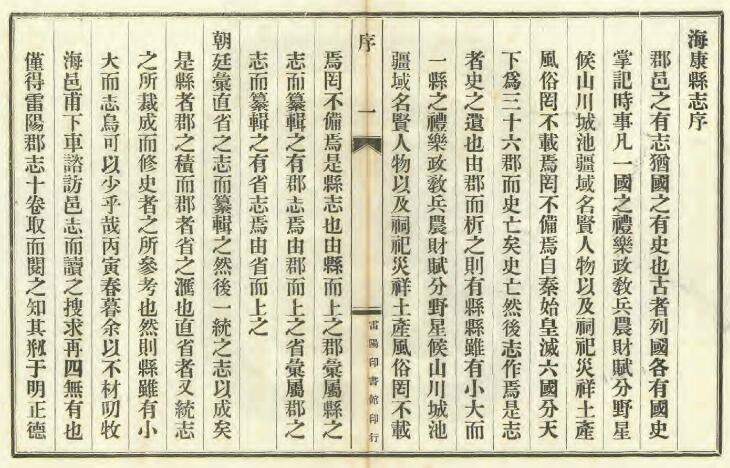 海康縣志序
郡邑之有志猶國之有史也古者列國各有國史
掌記時事凡一國之禮樂政教兵農財賦分野星
候山川城池疆域名賢人物以及祠祀災祥土產
風俗罔不載焉罔不備焉自秦始皇滅六國分天
下爲三十六郡而史亡矣史亡然後志作焉是志
者史之遺也由郡而析之則有縣縣雖有小大而
一縣之禮樂政敎兵農財賦分野星候山川城池
疆域名賢人物以及祠祀災祥土產風俗罔不載
序
一
雷陽印書館印行
焉罔不備焉是縣志也由縣而上之郡彙屬縣之
志而纂輯之有郡志焉由郡而上之省彙屬郡之
志而纂輯之有省志焉由省而上之
朝廷彙直省之志而纂輯之然後一統之志以成矣
是縣者郡之積而郡者省之滙也直省者又統志
之所裁成而修史者之所參考也然則縣雖有小
大而志烏可以少乎哉丙寅春暮余以不材叨牧
海邑甫下車諮訪邑志而讀之搜求再四無有也
僅得雷陽郡志十卷取而閱之知其剏于明正德